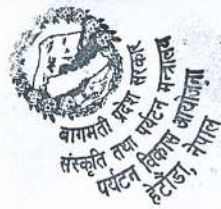 बागमती प्रदेश सरकार
संस्कृति तथा पर्यटन मन्त्रालय
पर्यटन विकास आयोजना
हेटौंडा, नेपाल